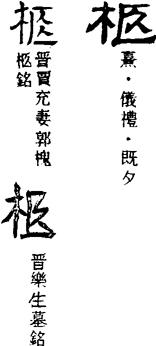 柩
熹·儀禮·既夕
柩
晉賈充妻郭槐
柩銘
柩
晉樂生墓銘